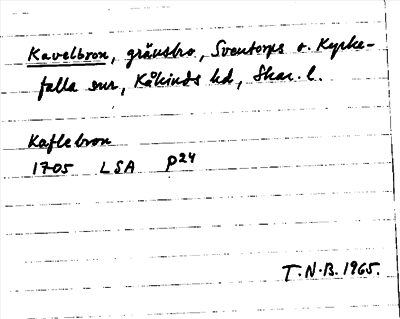 Kavelbron, gränsbro, Sventorps o. Kyrke-
falla snr, Kåkinds hd, Skar. l.
Kaflebron
1705 LSA P24
T.N.B. 1965.